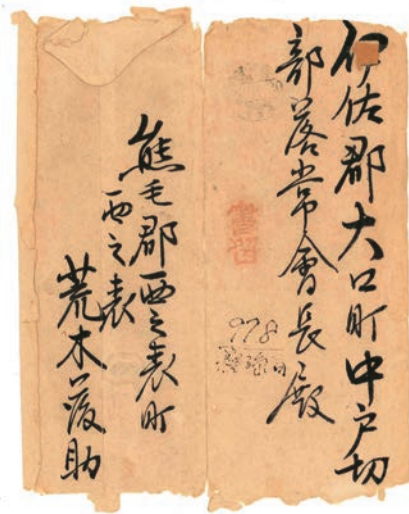 伊佐郡大口町中戸切
部落常會長殿
書留
978
熊毛郡西之表町
西之表
荒木
助